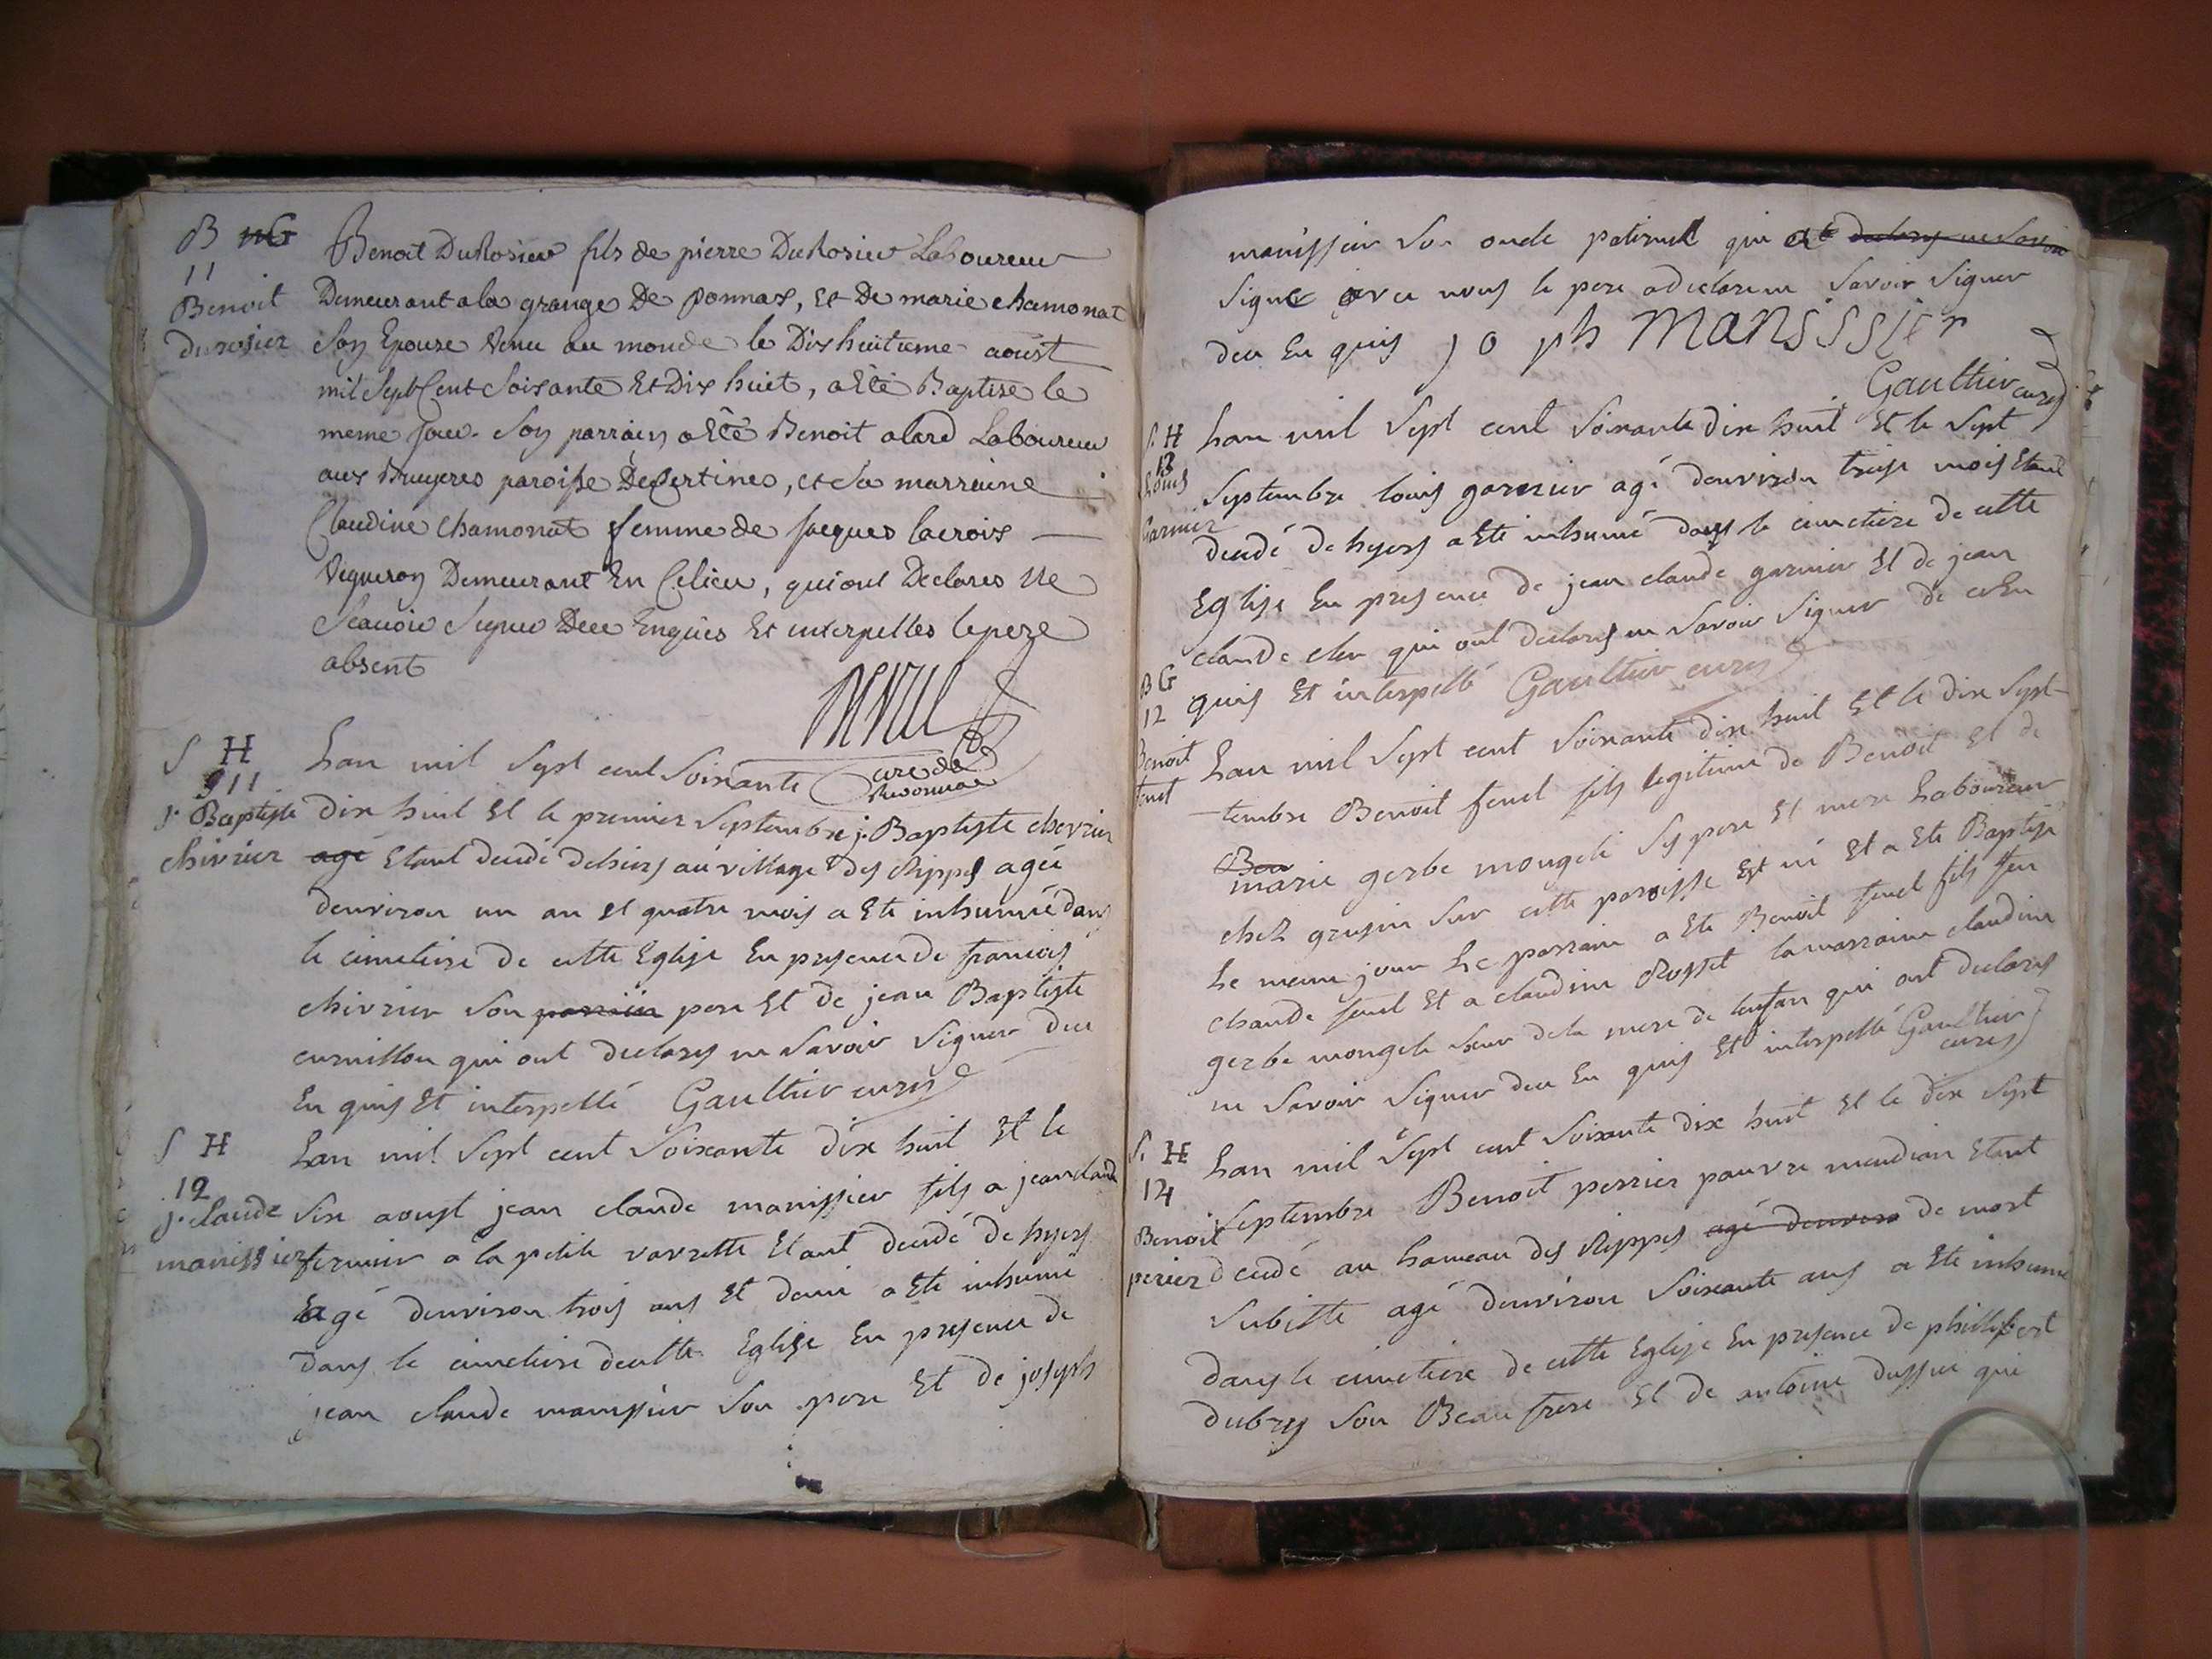 B
11
Benoit
Durosier
Benoit DuRosier fils de pierre DuRosier Laboureur
Demeurant a la grange De Ponnas, et De marie chamonat
Son Epouze venu au monde le Dixhuitieme aoust
mil Sept Cent Soixante Et Dix huit, a Eté Baptize le
meme Jour. Son parrain a Eté Benoit alard Laboureur
aux Bruyeres paroisse De Certines, et Sa marraine
Claudine Chamonat femme de Jacques lacroix
Vigneron Demeurant En Celieu, qui ont Declares Ne
Scavoir Signer De ce Enquis Et interpellés le pere
absent
curé de
S H
11
j. Baptiste
chivrier
Lan mil Sept cent Soixante
dix huit Et le premier Septembre j. Baptiste chevrier
agé Etant decidé dehiers au village des Rippes agée
denviron un an et quatre mois a Ete inhumé dans
le cimetiere de cette Eglise En presence de francois
chivrier Son parrain pere Et de jean Baptiste
curnillon qui ont declares ne Savoir Signer deu
En quis Et interpellé Gaulthier curés
S H
12
j. claude
manissier
Lan mil Sept cent Soixante dix huit Et le
Six aoust jean claude manissier fils a jean claude
fermier a la petite varette Etant decidé de hyers
Eagé denviron trois ans Et demi a Ete inhumé
dans le cimetiere de cette Eglise En presence de
jean claude manissier Son pere Et de joseph
manissier Son oncle paternel qui a declares ne Savoir
Signé avec nous le pere a declare ne Savoir Signer
deu En quis jo ph manissier
Gaulthier curés
S. H
13
Louis
Garnier
Lan mil Sept cent Soixante dix huit Et le Sept
Septembre louis garnier agé denviron treise mois Etant
decidé de hyers a Ete inhumé dans le cimetiere de cette
Eglise En presence de jean claude garnier Et de jean
claude cler qui ont declares ne Savoir Signer de ce En
quis Et interpellé Gaulthier curés
B G
12
Benoit
fenet
Lan mil Sept cent Soixante dix huit Et le dix Sept
tembre Benoit fenet fils legitime de Benoit Et de
marie gerbe mongele Ses pere Et mere Laboureur
chez grusin Sur cette paroisse Est né Et a Ete Baptisé
Le meme jour Le parrain a Ete Benoit fenet fils feu
claude fenet Et a claudine Rosset la marraine claudine
gerbe mongele Seur de la mere de lenfan qui ont declares
ne Savoir Signer deu En quis Et interpellé Gaulthier
curés
S. H
14
Benoit
perier
Lan mil Sept cent Soixante dix huit Et le dix Sept
Septembre Benoit perrier pauvre mendian Etant
decidé au hameau des Rippes agé denviron de mort
Subitte agé denviron Soixante ans a Ete inhumé
dans le cimetiere de cette Eglise En presence de philibert
dubrey Son Beau frere Et de antoine qui